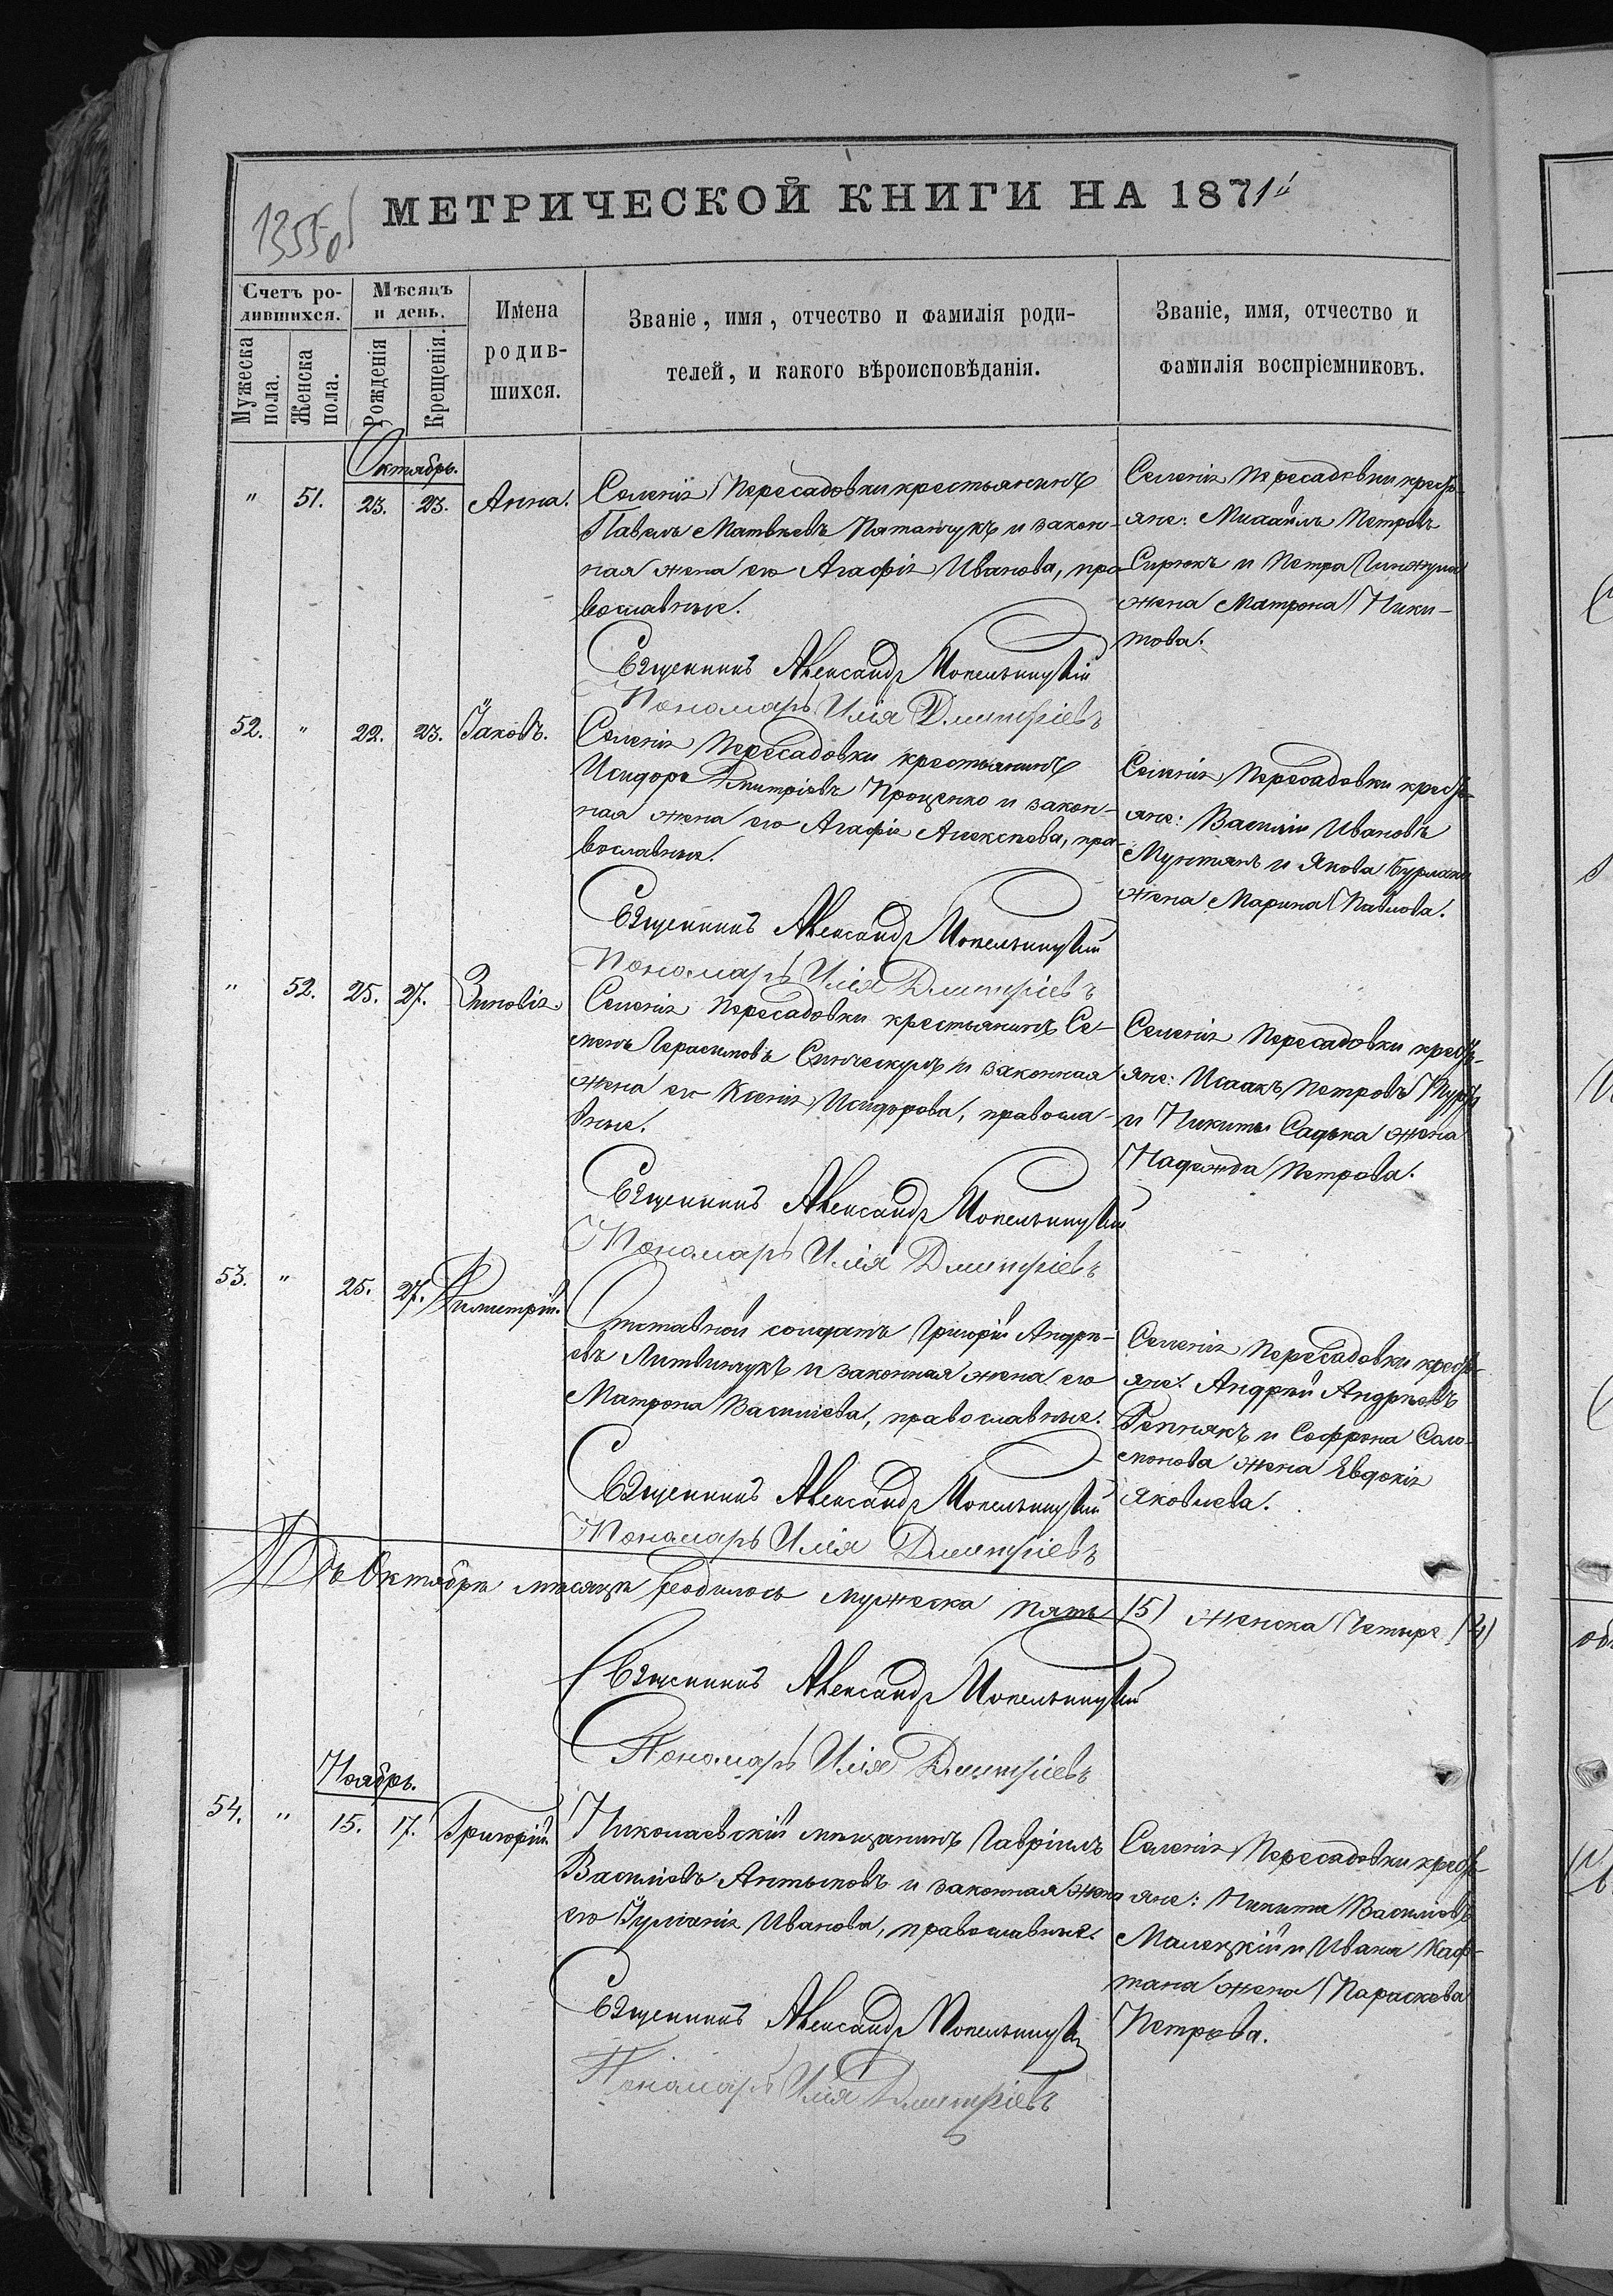 1355 об
МЕТРИЧЕСКОЙ КНИГИ НА 1871й
Счетъ ро-
дившихся.
Мужеска
пола.
Женска
пола.
Мѣсяцъ
и день.
Рожденія
Крещенія.
Имена
родив-
шихся.
Званіе, имя, отчество и фамилія роди-
телей, и какого вѣроисповѣданія.
Званіе, имя, отчество и
фамилія воспріемниковъ.
Октябрь.
" 51. 23. 23. Анна.
Селенія Пересадовки крестьянинъ
Павелъ Матвѣевъ Пятанчукъ и закон-
ная жена его Агафія Иванова, пра-
вославные.
Священникъ Александр
Пономарь Илія Дмитріевъ
Селенія Пересадовки кресть-
яне: Михаилъ Петровъ
Сирюкъ и Петра
жена Матрона Ники-
това.
52. " 22. 23. Іаковъ.
Селенія Пересадовки крестьянинъ
Исидоръ Дмитріевъ Проценко и закон-
ная жена его Агафія Алексѣева, пра-
вославные.
Священникъ Александр
Пономарь Илія Дмитріевъ
Селенія Пересадовки кресть-
яне: Василій Ивановъ
Мунтянъ и Якова Бурлаки
жена Марина Павлова.
" 52. 25. 27. Зиновія.
Селенія Пересадовки крестьянинъ Се-
менъ Герасимовъ и законная
жена его Ксенія Исидорова, правосла-
вные.
Священникъ Александр
Пономарь Илія Дмитріевъ
Селенія Пересадовки кресть-
яне: Исаакъ Петровъ
и Никиты Садыка жена
Надежда Петрова.
53. " 25. 27. Димитрій.
Отставной солдатъ Григорій Андре-
евъ Литвинчукъ и законная жена его
Матрона Василіева, православные.
Священникъ Александр
Пономарь Илія Дмитріевъ
Селенія Пересадовки кресть-
яне: Андрей Андреевъ
и Софрона Соло-
монова жена Евдокія
Яковлева.
Въ Октябрѣ мѣсяцѣ родилось мужеска пять (5) женска четыре (4)
Священникъ Александр
Пономарь Илія Дмитріевъ
Ноябрь.
54. " 15. 17. Григорій.
Николаевскій мѣщанинъ Гавріилъ
Василіевъ Антыповъ и законная жена
его Іуліанія Иванова, православные.
Священникъ Александр
Пономарь Илія Дмитріевъ
Селенія Пересадовки кресть-
яне: Никита Василіевъ
Малецкій и Ивана Каф-
тана жена Параскева
Петрова.